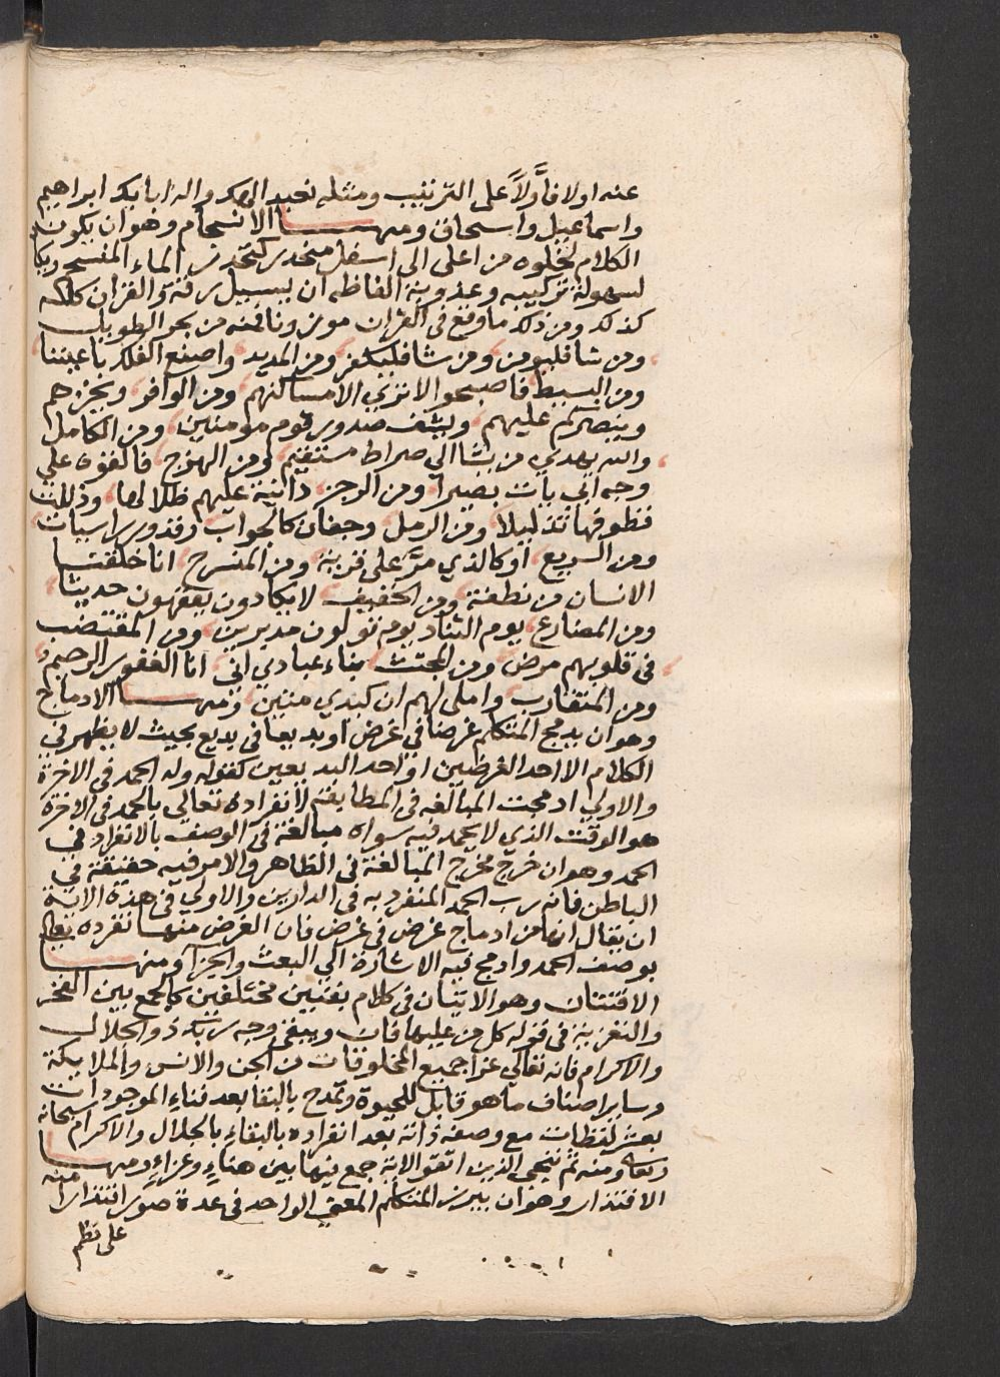 عنه اولا فأولاً على الترتيب ومثله نعبد الهك واله ابايك ابراهيم
واسماعيل واسحاق ومنها الانسجام وهو ان يكون
الكلام لخلوه من اعلى الى اسفل منحدر كتحدر الماء المنسجم ويكا
لسهولة تركيبه وعذوبة الفاظه ان يسيل رقة والقران كله
كذلك ومن ذلك ما وقع في القران موزونا فمنه من بحر الطويل
ومن شا فليومن ومن شا فليكفر ومن المديد واصنع الفلك باعيننا
ومن البسيط فاصبحوا لا تري الا مساكنهم ومن الوافر ويخزهم
وينصركم عليهم ويشف صدور قوم مومنين ومن الكامل
والله يهدي من يشا الي صراط مستقيم ومن الهزج فالقوه علي
وجه ابي يات بصيرا ومن الرجز دانية عليهم ظلالها وذللت
قطوفها تذليلا ومن الرمل وجفان كالجواب وقدور راسيات
ومن السريع او كالذي مرّ على قرية ومن المنسرح انا خلقنا
الانسان من نطفة ومن الخفيف لا يكادون يفقهون حديثا
ومن المضارع يوم التناد يوم تولون مدبرين ومن المقتضب
في قلوبهم مرض ومن المجتث نباء عبادي اني انا الغفور الرحيم
ومن المتقارب واملى لهم ان كيدي متين ومنها الادماج
وهو ان يدمج المتكلم غرضا في غرض او بديعا في بديع بحيث لا يظهر في
الكلام الا احد الغرضين او احد البديعين كقوله وله الحمد في الاخرة
والاولي ادمجت المبالغه في المطابقة لأنفراده تعالي بالحمد في الاخرة
هو الوقت الذي لا يحمد فيه سواه مبالغة في الوصف بالانفراد في
الحمد وهو ان خرج مخرج المبالغة في الظاهر والامر فيه حقيقة في
الباطن فانه رب الحمد المنفرد به في الدارين والاولي في هذه الاية
ان يقال انها من ادماج غرض في غرض فان الغرض منها تفرده تعالى
بوصف الحمد وادمج فيه الاشارة الي البعث والجزآ ومنها
الافتنان وهو الاتيان في كلام بفنين مختلفين كالجمع بين الفخر
والتعزية في قوله كل من عليها فان ويبقى وجه ربك ذو الجلال
والاكرام فانه تعالي عزا جميع المخلوقات من الجن والانس والملايكة
وساير اصناف ما هو قابل للحيوة وتمدح بالبقا بعد فناء الموجودات
بعشر لفظات مع وصفه ذاته بعد انفراده بالبقاء بالجلال والاكرام سبحانه
وتعالى ومنه ثم ننجي الذين اتقوا الاية جمع فيها بين هناءٍ وعزاءٍ ومنها
الاقتدار وهو ان يبرز المتكلم المعني الواحد في عدة صور اقتدارا منه
على نظم